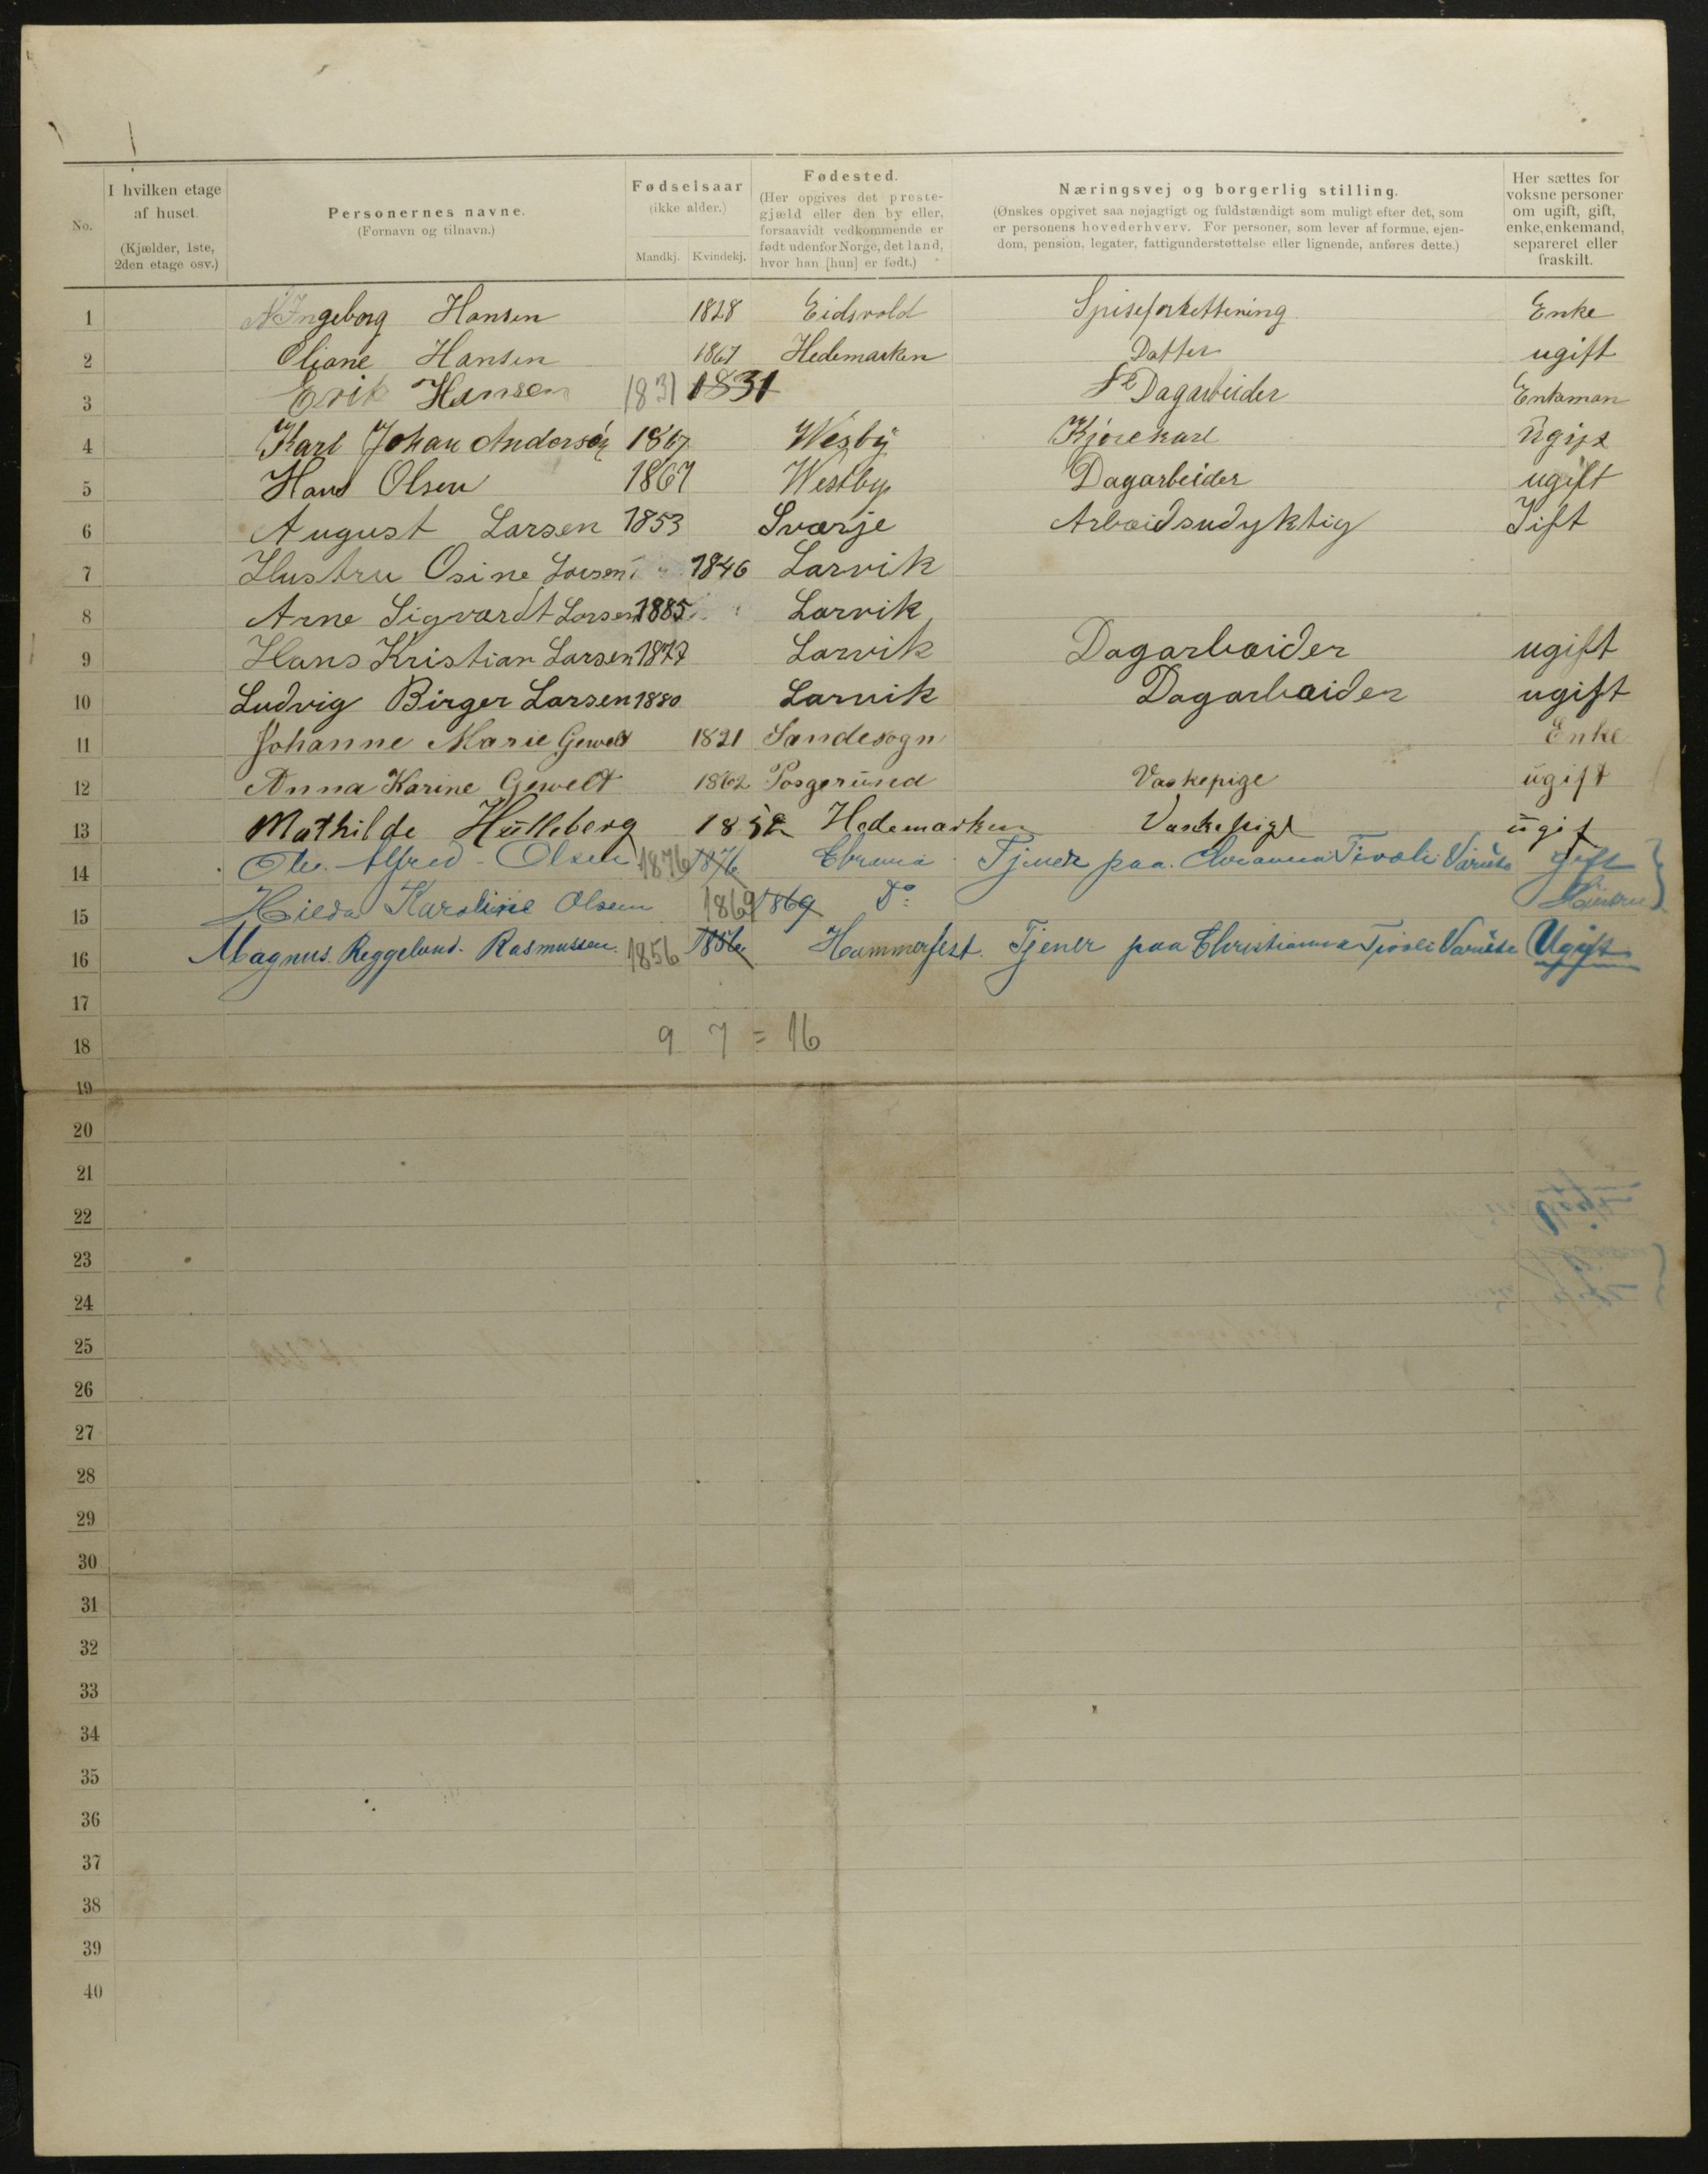 No.
I hvilken etage af huset. (Kjælder, 1ste, 2den etage osv.)
Personernes navne. (Fornavn og tilnavn.)
Fødselsaar (ikke alder.) Mandkj. Kvindekj.
Fødested. (Her opgives det prestegjæld eller den by eller, forsaavidt vedkommende er født udenfor Norge, det land, hvor han [hun] er født.)
Næringsvej og borgerlig stilling. (Ønskes opgivet saa nøjagtigt og fuldstændigt som muligt efter det, som er personens hovederhverv. For personer, som lever af formue, ejendom, pension, legater, fattigunderstøttelse eller lignende, anføres dette.)
Her sættes for voksne personer om ugift, gift, enke, enkemand, separeret eller fraskilt.
1 Ingeborg Hansen 1828 Eidsvold Spiseforretning Enke
2 Oliane Hansen 1867 Hedemarken Datter ugift
3 Erik Hansen 1831 1831 Dagarbeider Enkaman
4 Karl Johan Andersen 1867 Wesby Kjørekarl ugift
5 Hans Olsen 1867 Westby Dagarbeider ugift
6 August Larsen 1853 Sværje Arbæidsudyktig Jift
7 Hustru Osine Larsen 1846 Larvik
8 Arne Sigvardt Larsen 1885 Larvik
9 Hans Kristian Larsen 1877 Larvik Dagarbæider ugift
10 Ludvig Birger Larsen 1880 Larvik Dagarbæider ugift
11 Johanne Marie Gewelt 1821 Sandesogn Enke
12 Anna Karine Gewelt 1862 Posgerund Vaskepige ugift
13 Mathilde Hülleberg 1852 Hedemarken Vaskepige ugif
14 Ole Alfred Olsen 1876 1876 Chrania Tjener paa Chrania Tivoli Variete gift
15 Hilda Karoline Olsen 1869 1869 Do
16 Magnus Reggelund Rasmussen 1856 1856 Hammerfest Tjener paa Christiania Tivoli Variete Ugift
17
18 9 7 = 16
19
20
21
22
23
24
25
26
27
28
29
30
31
32
33
34
35
36
37
38
39
40